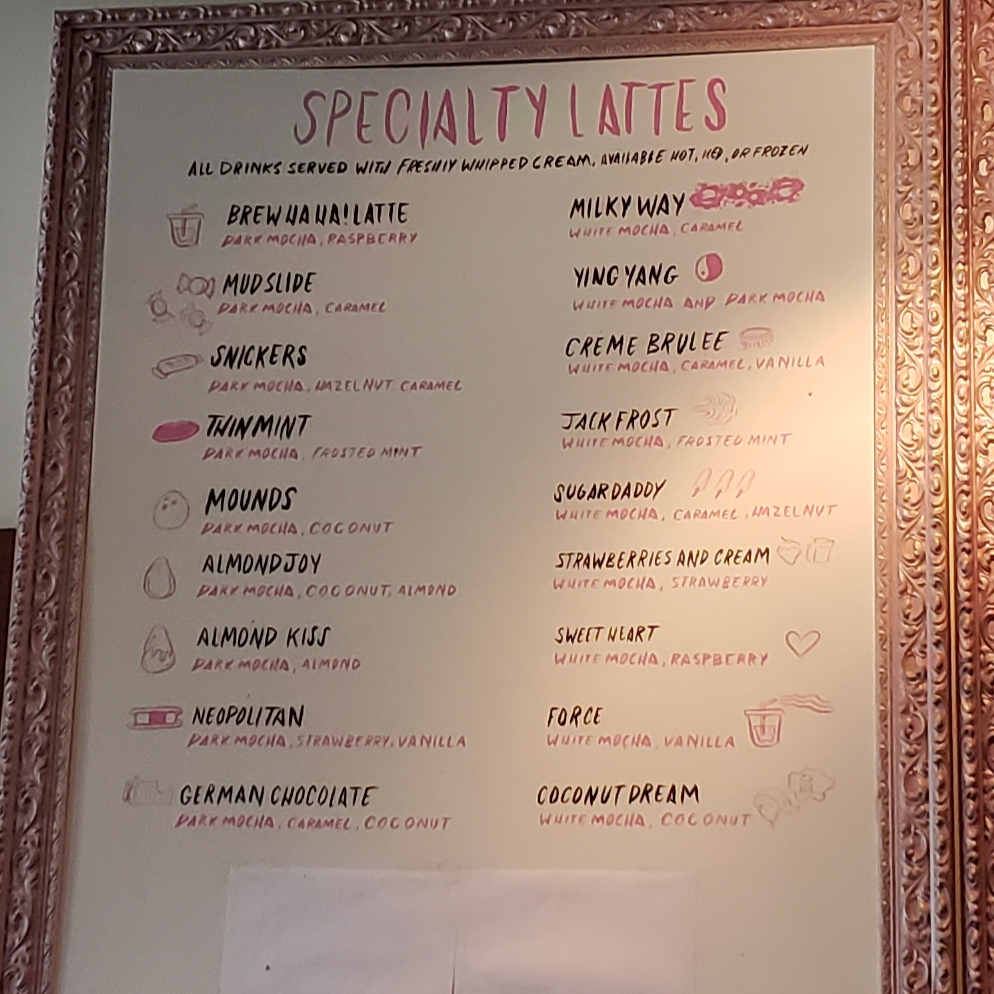 SPECIALTY LATTES
ALL DRINKS SERVED WITH FRESHLY WHIPPED CREAM, AVAILABLE HOT, ICED, OR FROZEN
BREWHAHA! LATTE
DARK MOCHA, RASPBERRY
MUDSLIDE
DARK MOCHA, CARAMEL
SNICKERS
DARK MOCHA, HAZELNUT, CARAMEL
THIN MINT
DARK MOCHA, FROSTED MINT
MOUNDS
DARK MOCHA, COCONUT
ALMOND JOY
DARK MOCHA, COCONUT, ALMOND
ALMOND KISS
DARK MOCHA, ALMOND
NEOPOLITAN
DARK MOCHA, STRAWBERRY, VANILLA
GERMAN CHOCOLATE
DARK MOCHA, CARAMEL, COCONUT
MILKY WAY
WHITE MOCHA, CARAMEL
YING YANG
WHITE MOCHA AND DARK MOCHA
CREME BRULEE
WHITE MOCHA, CARAMEL, VANILLA
JACK FROST
WHITE MOCHA, FROSTED MINT
SUGAR DADDY
WHITE MOCHA, CARAMEL, HAZELNUT
STRAWBERRIES AND CREAM
WHITE MOCHA, STRAWBERRY
SWEET HEART
WHITE MOCHA, RASPBERRY
FORCE
WHITE MOCHA, VANILLA
COCONUT DREAM
WHITE MOCHA, COCONUT